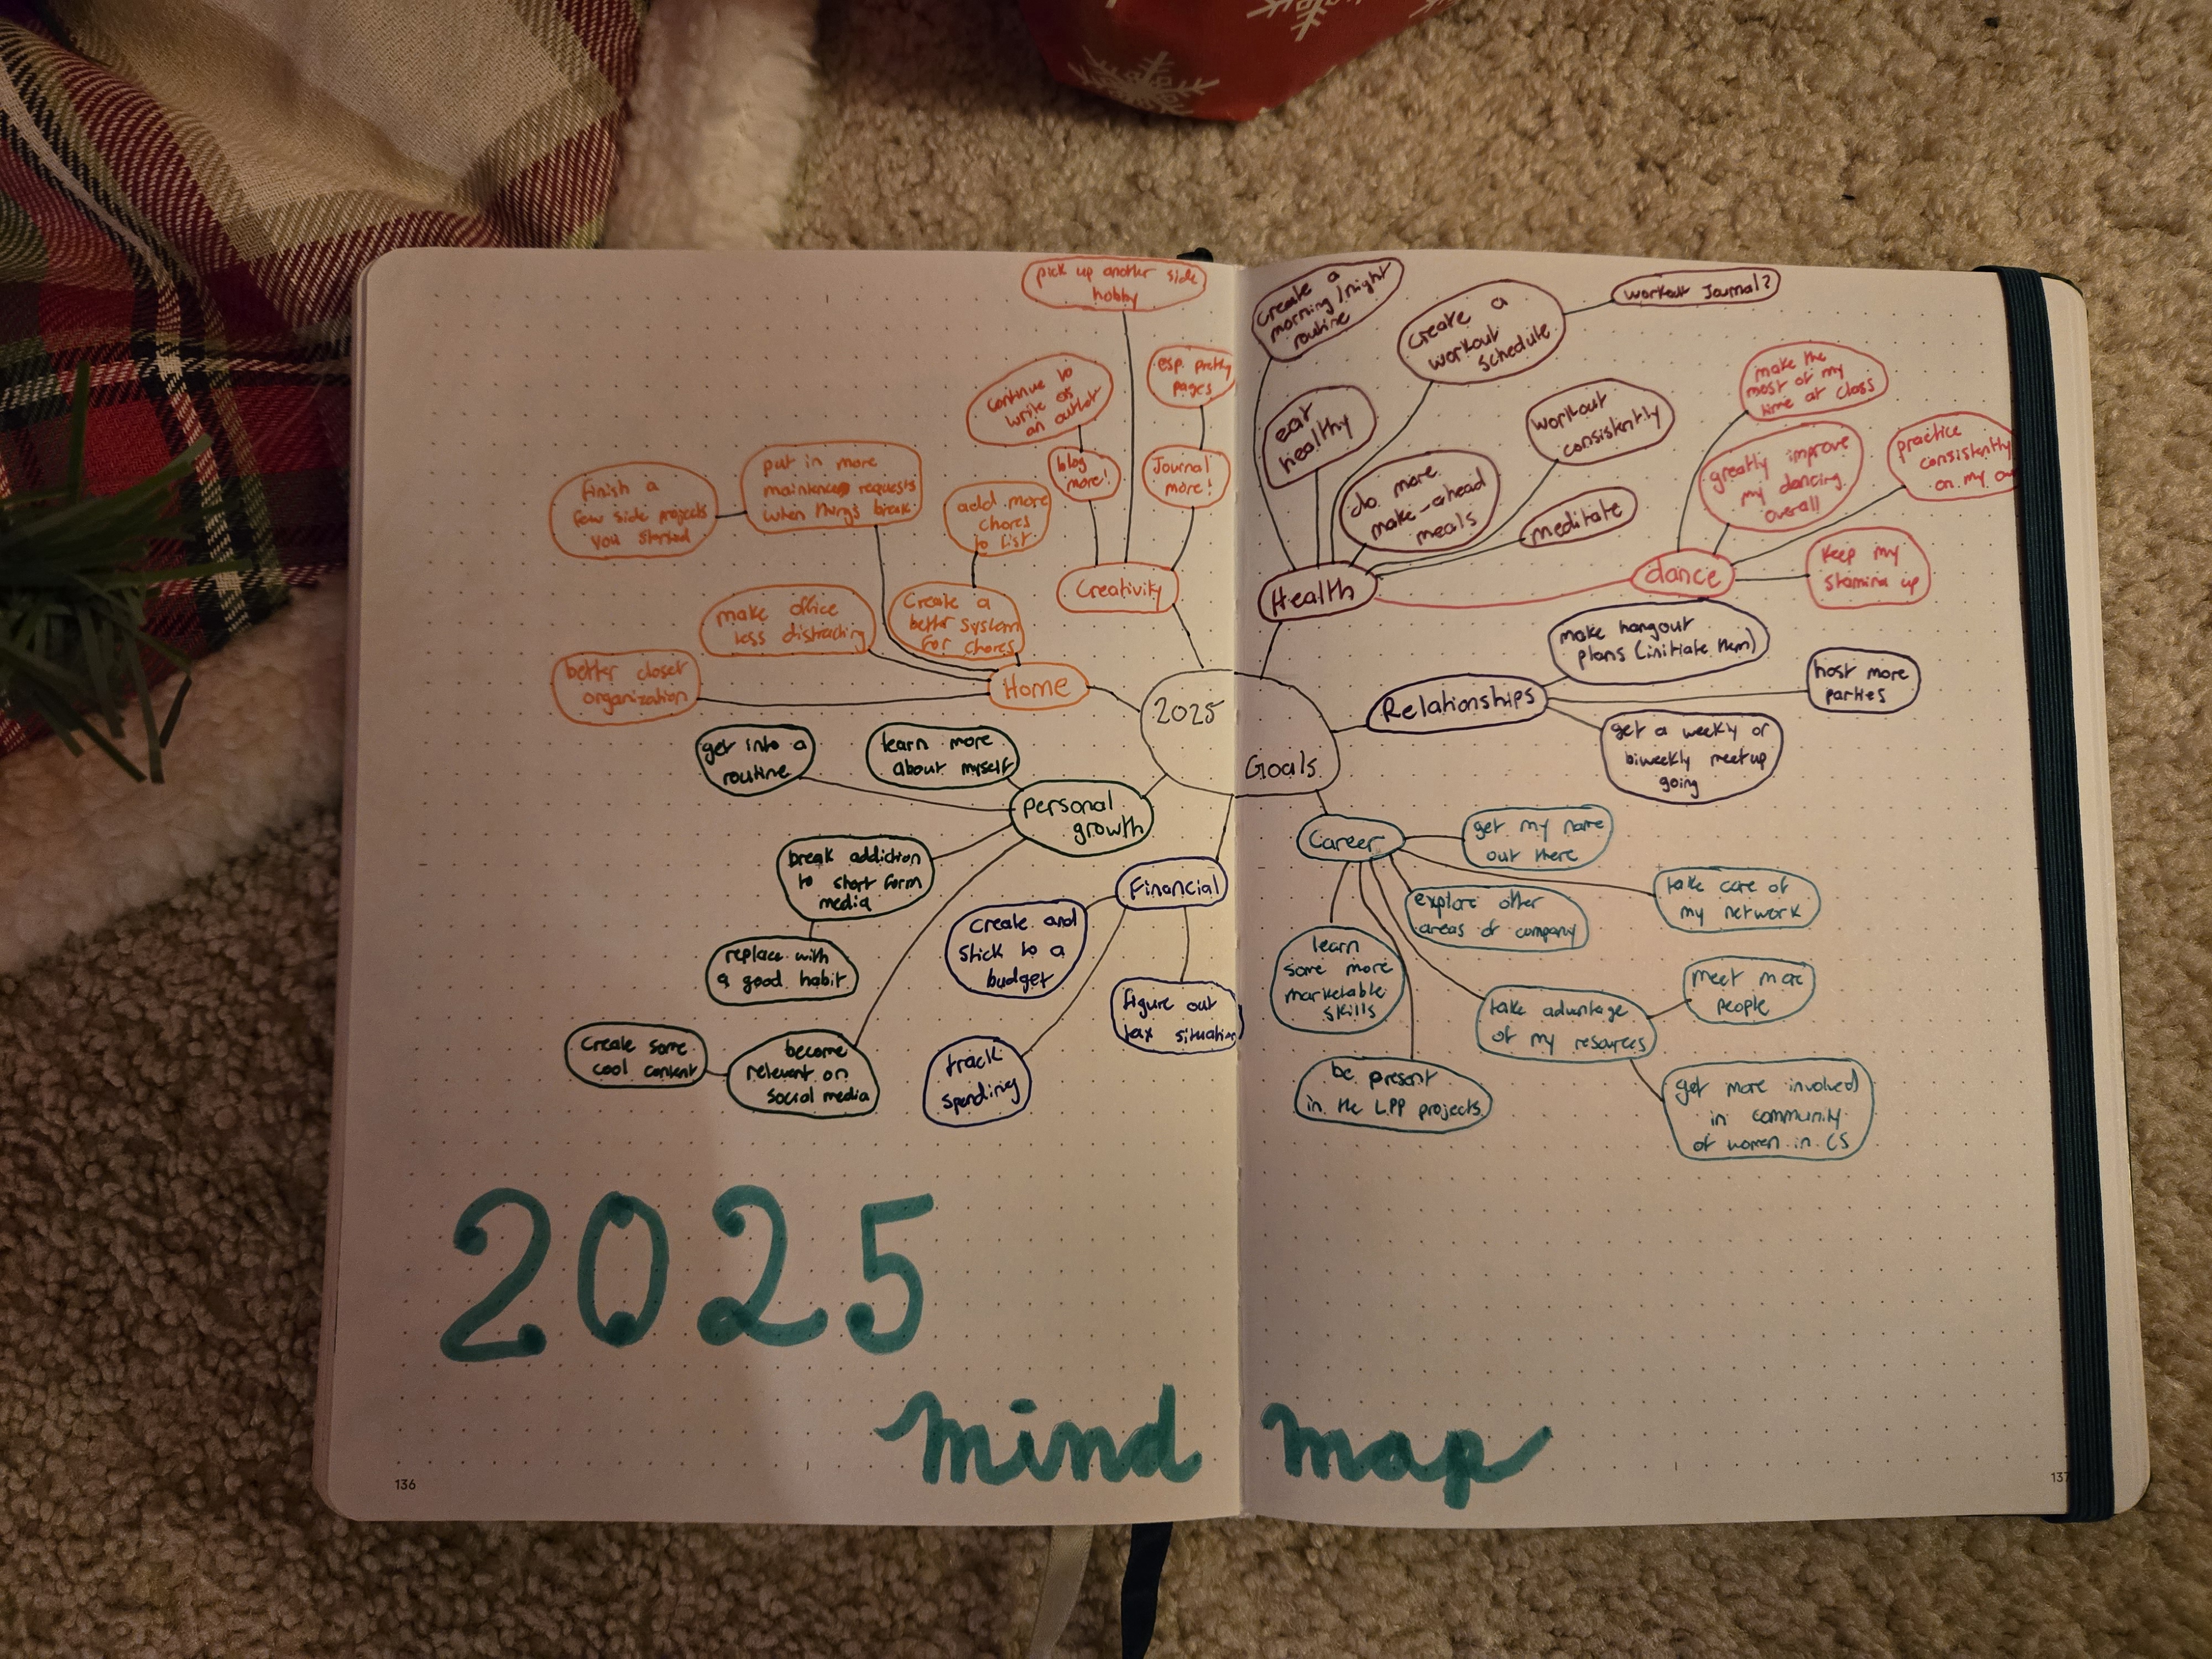 pick up another side
hobby
continue to
write as
an outlet
esp. pretty
pages
blog
more!
Journal
more!
Creativity
Finish a
few side projects
you started
put in more
maintence requests
when things break
add more
chores
to list
make office
less distracting
Create a
better system
for chores
better closet
organization
Home
2025
Goals
get into a
routine
learn more
about myself
personal
growth
break addiction
to short form
media
replace with
a good habit
Create some
cool content
become
relevant on
social media
Financial
create and
stick to a
budget
track
spending
figure out
tax situation
create a
morning/night
routine
create a
workout
schedule
workout Journal?
eat
healthy
do more
make-ahead
meals
workout
consistently
meditate
Health
make the
most of my
time at class
greatly improve
my dancing
overall
practice
consistently
on my
dance
keep my
stamina up
make hangout
plans (initiate them)
Relationships
host more
parties
get a weekly or
biweekly meetup
going
Career
get my name
out there
explore other
areas of company
take care of
my network
learn
some more
marketable
skills
take advantage
of my resources
meet more
people
be present
in the LPP projects
get more involved
in community
of women in CS
2025
mind map
136
137